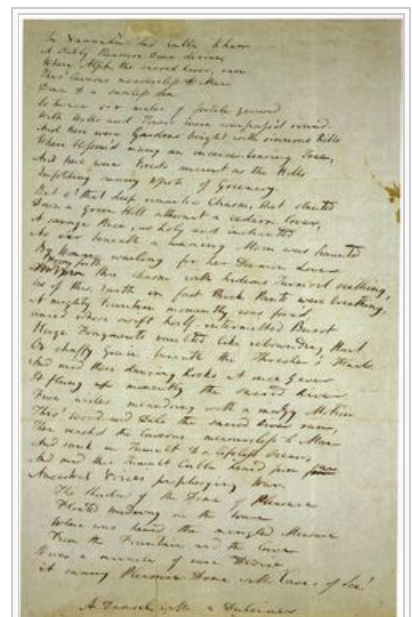 In Xannadù did Cubla Khan
A stately Pleasure-Dome decree;
Where Alph, the sacred River, ran
Thro' Caverns measureless to Man
Down to a sunless Sea.
So twice six miles of fertile ground
With Walls and Towers were compass'd round:
And here were Gardens bright with sinuous Rills
Where blossom'd many an incense-bearing Tree,
And here were Forests ancient as the Hills
Enfolding sunny Spots of Greenery.
But o! that deep romantic Chasm, that slanted
Down a green Hill athwart a cedarn Cover,
A savage Place, as holy and inchanted
As e'er beneath a waning Moon was haunted
By Woman wailing for her Dæmon Lover:
this Chasm with hideous Turmoil seething,
As if this Earth in fast thick Pants were breathing,
A mighty Fountain momently was forc'd,
Amid whose swift half-intermitted Burst
Huge Fragments vaulted like rebounding Hail,
Or chaffy Grain beneath the Thresher's Flail:
And mid these dancing Rocks at once & ever
It flung up momently the sacred River.
Five miles meandring with a mazy Motion
Thro' Wood and Dale the sacred River ran,
Then reach'd the Caverns measureless to Man
And sank in Tumult to a lifeless Ocean;
And mid this Tumult Cubla heard from
Ancestral Voices prophesying War.
The Shadow of the Dome of Pleasure
Floated midway on the Wave
Where was heard the mingled Measure
From the Fountain and the Cave.
It was a miracle of rare Device,
A sunny Pleasure-Dome with Caves of Ice!
A Damsel with a Dulcimer